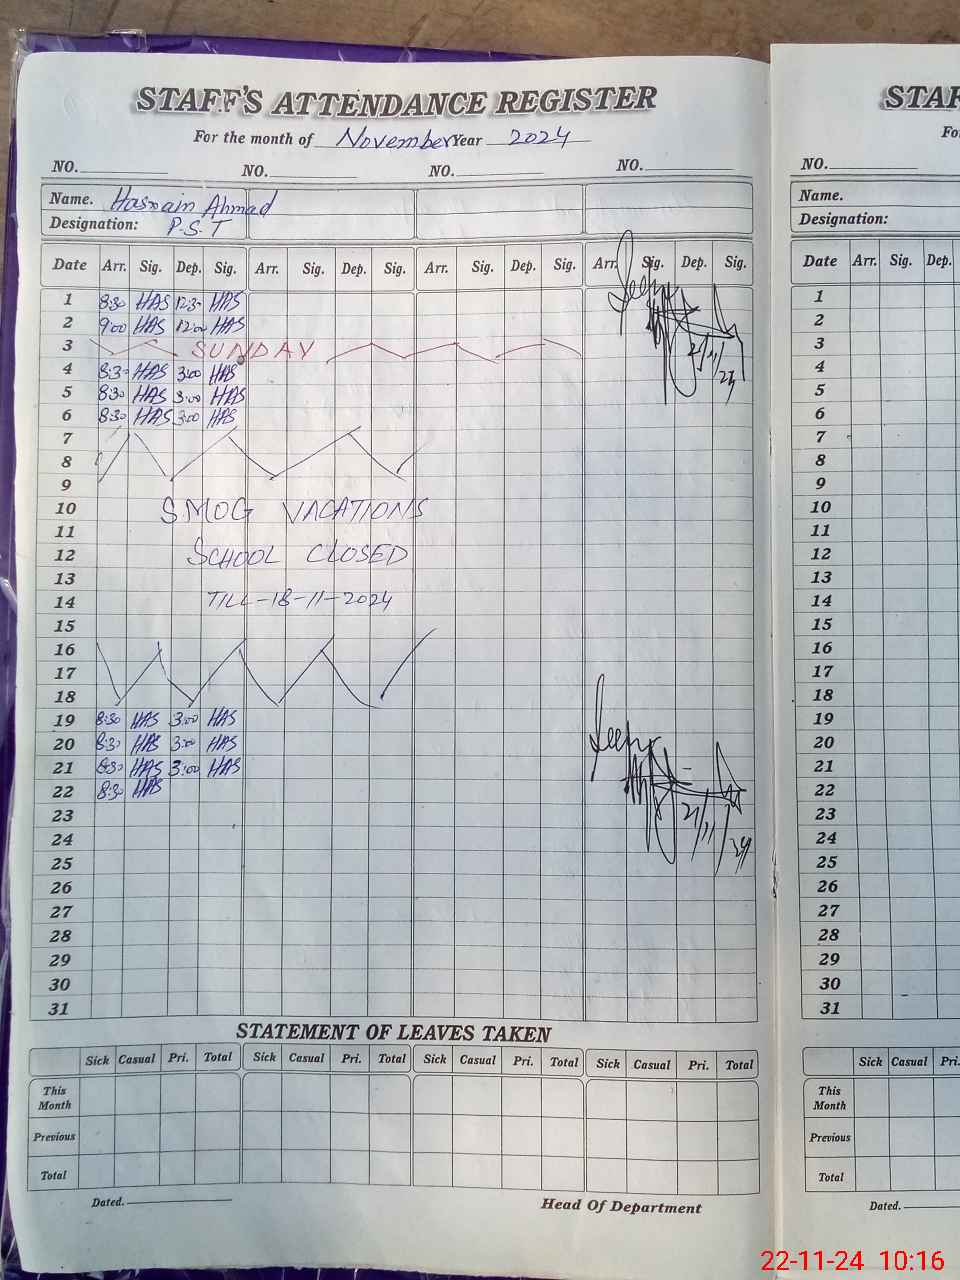 STAFF'S ATTENDANCE REGISTER
For the month of November Year 2024
NO. NO. NO. NO.
Name. Hasnain Ahmad
Designation: P.S.T
Date Arr. Sig. Dep. Sig. Arr. Sig. Dep. Sig. Arr. Sig. Dep. Sig. Arr. Sig. Dep. Sig.
1 8:30 HAS 12:30 HAS
2 9:00 HAS 12:00 HAS
3 SUNDAY
4 8:30 HAS 3:00 HAS
5 8:30 HAS 3:00 HAS
6 8:30 HAS 3:00 HAS
7
8
9
10 SMOG VACATIONS
11
12 SCHOOL CLOSED
13
14 TILL-18-11-2024
15
16
17
18
19 8:30 HAS 3:00 HAS
20 8:30 HAS 3:00 HAS
21 8:30 HAS 3:00 HAS
22 8:30 HAS
23
24
25
26
27
28
29
30
31
Seen
Seen
21/11/24
STATEMENT OF LEAVES TAKEN
Sick Casual Pri. Total Sick Casual Pri. Total Sick Casual Pri. Total Sick Casual Pri. Total
This
Month
Previous
Total
Dated. Head Of Department
STAF
Fo
NO.
Name.
Designation:
Date Arr. Sig. Dep.
1
2
3
4
5
6
7
8
9
10
11
12
13
14
15
16
17
18
19
20
21
22
23
24
25
26
27
28
29
30
31
Sick Casual Pri.
This
Month
Previous
Total
Dated.
22-11-24 10:16